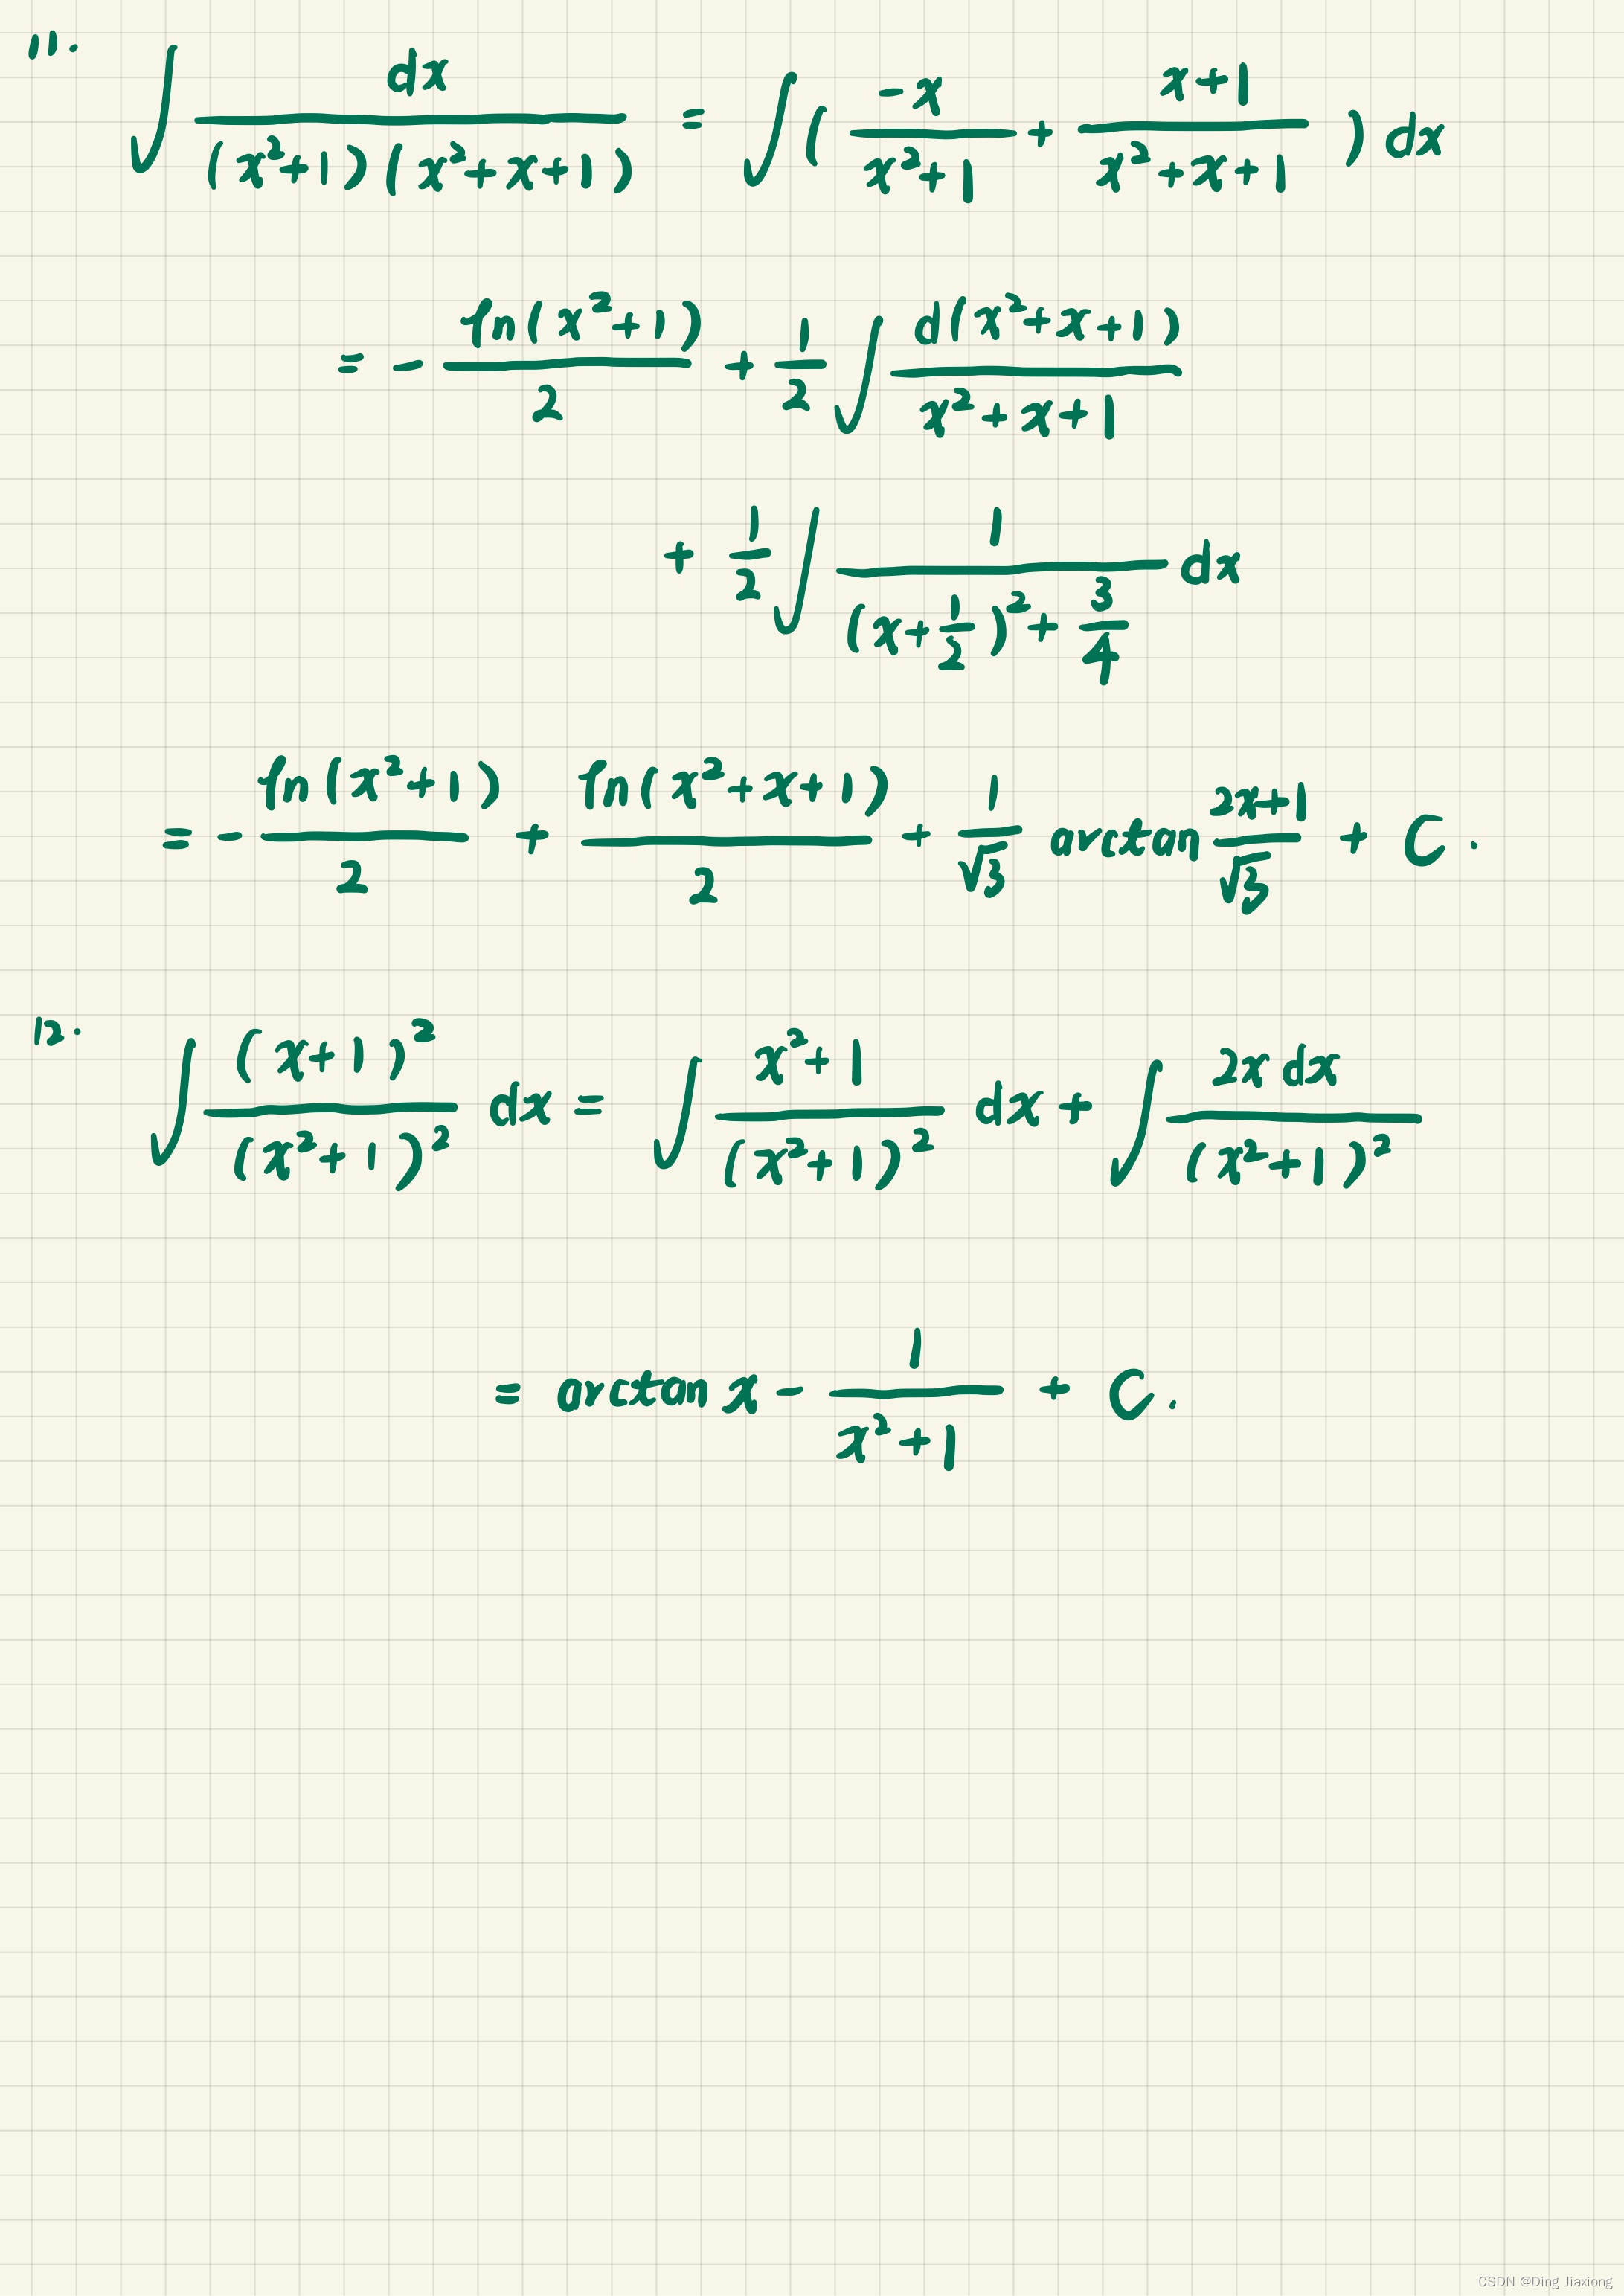 11. ∫ dx / ((x²+1)(x²+x+1)) = ∫ ( -x / (x²+1) + (x+1) / (x²+x+1) ) dx
= - ln(x²+1) / 2 + 1/2 ∫ d(x²+x+1) / (x²+x+1)
+ 1/2 ∫ 1 / ((x+1/2)² + 3/4) dx
= - ln(x²+1) / 2 + ln(x²+x+1) / 2 + 1/√3 arctan (2x+1)/√3 + C.
12. ∫ (x+1)² / (x²+1)² dx = ∫ (x²+1) / (x²+1)² dx + ∫ 2x dx / (x²+1)²
= arctan x - 1 / (x²+1) + C.
CSDN @Ding Jiaxiong